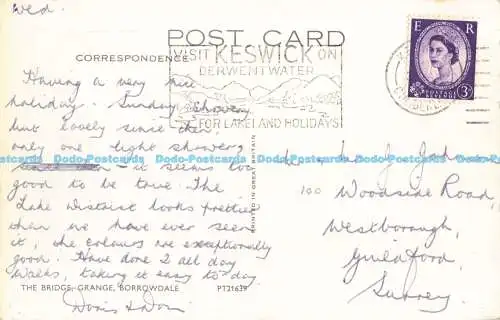 Wed.
POST CARD
CORRESPONDENCE
VISIT KESWICK ON
DERWENTWATER
FOR LAKELAND HOLIDAYS
E R
3D
Having a very nice
holiday. Sunday showery
but lovely since then,
only one light shower,
it seems too
good to be true. The
Lake District looks prettier
than we have ever seen
it, the colours are exceptionally
good. Have done 2 all day
walks, taking it easy to-day.
Doris
THE BRIDGE, GRANGE, BORROWDALE PT21639
PRINTED IN GREAT BRITAIN
100
Woodside Road,
Westborough,
Guildford,
Surrey.
Dodo-Postcards Dodo-Postcards Dodo-Postcards Dodo-Postcards Dodo-Postcards Dodo-Postcards